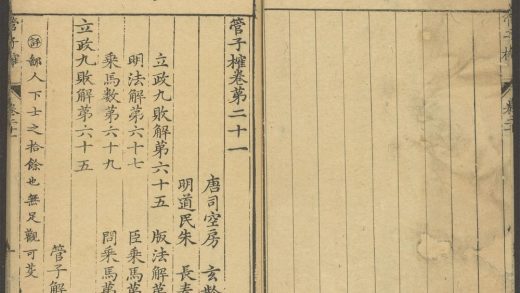 管子榷卷第二十一
唐司空房 玄齡
明道民朱 長春
立政九敗解第六十五 版法解第
明法解第六十七 臣乘馬第
乘馬數第六十九 問乘馬第
立政九敗解第六十五
管子解
評鄙人下士之拾餘也無足觀可芟
管子榷 卷二十一